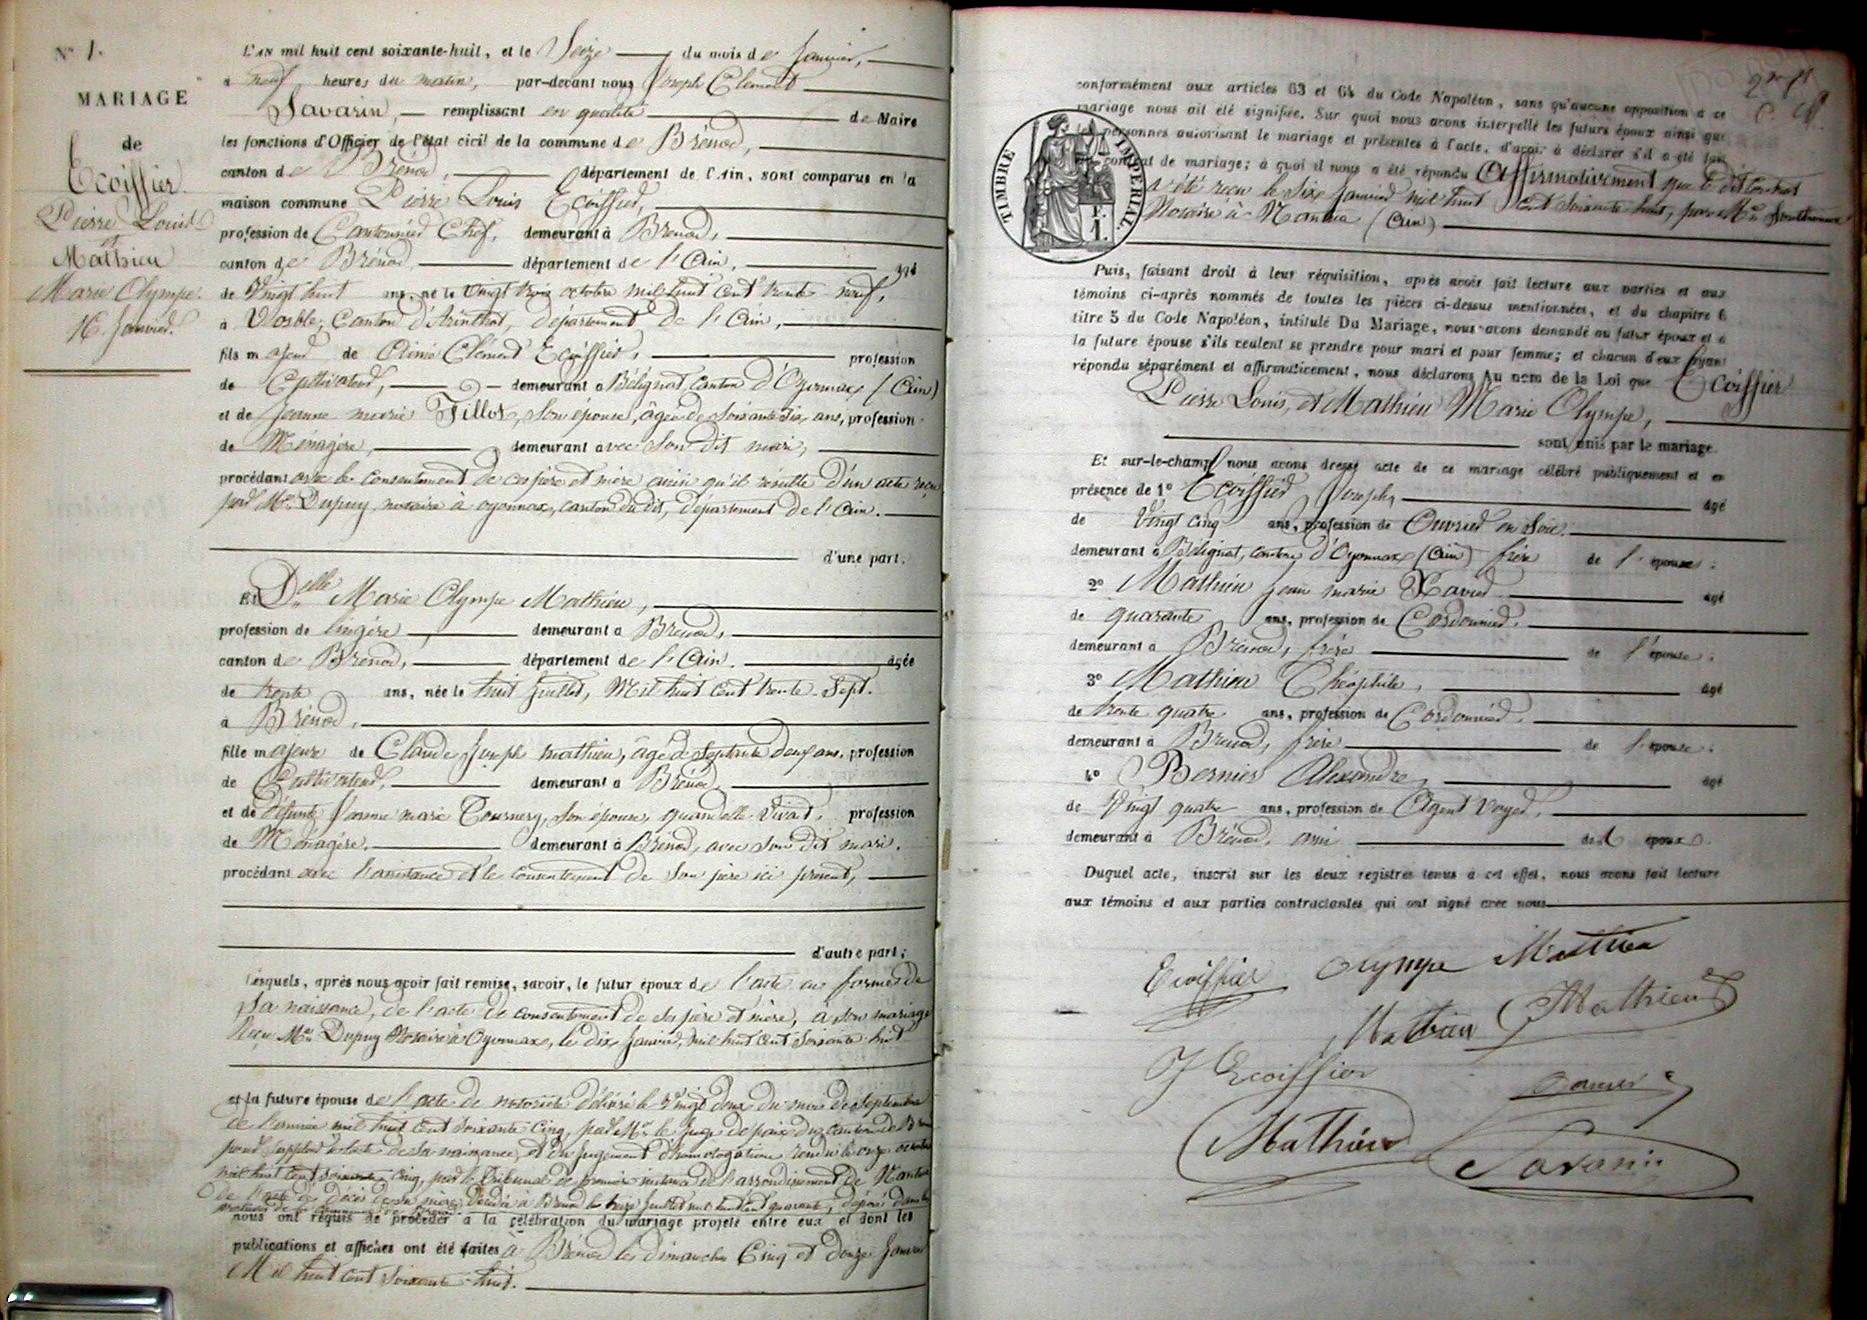 N° 1.
MARIAGE
de
Ecoiffier
Pierre Louis
et
Mathieu
Marie Olympe.
16. Janvier.
L'AN mil huit cent soixante-huit, et le Seize du mois de Janvier,
à neuf heures du matin, par-devant nous Joseph Clément
Savarin, remplissant en qualité de Maire
les fonctions d'Officier de l'état civil de la commune de Brénod,
canton de Brénod, département de l'Ain, sont comparus en la
maison commune Pierre Louis Ecoiffier,
profession de Cantonnier Chef, demeurant à Brénod,
canton de Brénod, département de l'Ain, âgé
de Vingt huit ans, né le Vingt trois octobre mil huit cent trente neuf,
à Vosbles, Canton d'Arinthod, département de l'Ain,
fils majeur de Aimé Clément Ecoiffier, profession
de Cultivateur, demeurant à Bélignat, Canton d'Oyonnax (Ain)
et de Jeanne marie Fillot, son épouse, âgée de soixante six ans, profession
de Ménagère, demeurant avec son dit mari,
procédant avec le consentement de ses père et mère ainsi qu'il résulte d'un acte reçu
par Me. Dupuy notaire à oyonnax, canton du dit, département de l'Ain.
d'une part.
Et Delle Marie Olympe Mathieu,
profession de lingère, demeurant à Brénod,
canton de Brénod, département de l'Ain. âgée
de trente ans, née le huit juillet, Mil huit cent trente-Sept.
à Brénod,
fille majeure de Claude Joseph mathieu, âgé de Septante deux ans, profession
de Cultivateur, demeurant à Brénod
et de défunte Jeanne marie Tournery, son épouse, quand elle vivait, profession
de Ménagère. demeurant à Brénod, avec son dit mari.
procédant avec l'assistance et le consentement de son père ici présent,
d'autre part;
Lesquels, après nous avoir fait remise, savoir, le futur époux de l'acte en forme de
sa naissance, de l'acte de consentement de ses père et mère, à son mariage
Reçu Me. Dupuy Notaire à Oyonnax, le dix Janvier, mil huit cent soixante huit
et la future épouse de l'acte de notoriété délivré le Vingt deux du mois de Septembre
de l'année mil huit cent soixante Cinq, par Mr. le Juge de paix du Canton de
pour suppléer l'acte de sa naissance, et du jugement d'homologation rendu le onze octobre
mil huit cent soixante cinq, par le tribunal de première instance de l'arrondissement de Nantua
de l'acte de décès de sa mère décédée à Brénod le treize Juillet mil huit cent quarante, déposé dans les
nous ont requis de procéder à la célébration du mariage projeté entre eux et dont les
publications et affiches ont été faites à Brénod les dimanches Cinq et douze Janvier
Mil huit cent soixante-huit.
conformément aux articles 63 et 64 du Code Napoléon, sans qu'aucune opposition à ce
mariage nous ait été signifiée. Sur quoi nous avons interpellé les futurs époux ainsi que
les personnes autorisant le mariage et présentes à l'acte, d'avoir à déclarer s'il a été fait
un contrat de mariage; à quoi il nous a été répondu Affirmativement que le dit Contrat
a été reçu le Six Janvier mil huit cent soixante huit, par Me.
Notaire à Nantua (Ain)
TIMBRE IMPÉRIAL.
Puis, faisant droit à leur réquisition, après avoir fait lecture aux parties et aux
témoins ci-après nommés de toutes les pièces ci-dessus mentionnées, et du chapitre 6
titre 5 du Code Napoléon, intitulé Du Mariage, nous avons demandé au futur époux et à
la future épouse s'ils veulent se prendre pour mari et pour femme; et chacun d'eux ayant
répondu séparément et affirmativement, nous déclarons au nom de la Loi que Ecoiffier
Pierre Louis, et Mathieu Marie Olympe,
sont unis par le mariage.
Et sur-le-champ nous avons dressé acte de ce mariage célébré publiquement et en
présence de 1° Ecoiffier Joseph, âgé
de Vingt cinq ans, profession de Ouvrier en Soie.
demeurant à Bélignat, canton d'Oyonnax (Ain) frère de l'époux;
2° Mathieu Jean marie Xavier âgé
de quarante ans, profession de Cordonnier.
demeurant à Brénod, frère de l'épouse;
3° Mathieu Théophile, âgé
de trente quatre ans, profession de Cordonnier,
demeurant à Brénod, frère de l'épouse;
4° Bernier Alexandre, âgé
de Vingt quatre ans, profession de Agent Voyer,
demeurant à Brénod, ami de l'époux.
Duquel acte, inscrit sur les deux registres tenus à cet effet, nous avons fait lecture
aux témoins et aux parties contractantes qui ont signé avec nous
Ecoiffier Olympe Mathieu
Mathieu JMathieu
J Ecoiffier
Mathieu Savarin